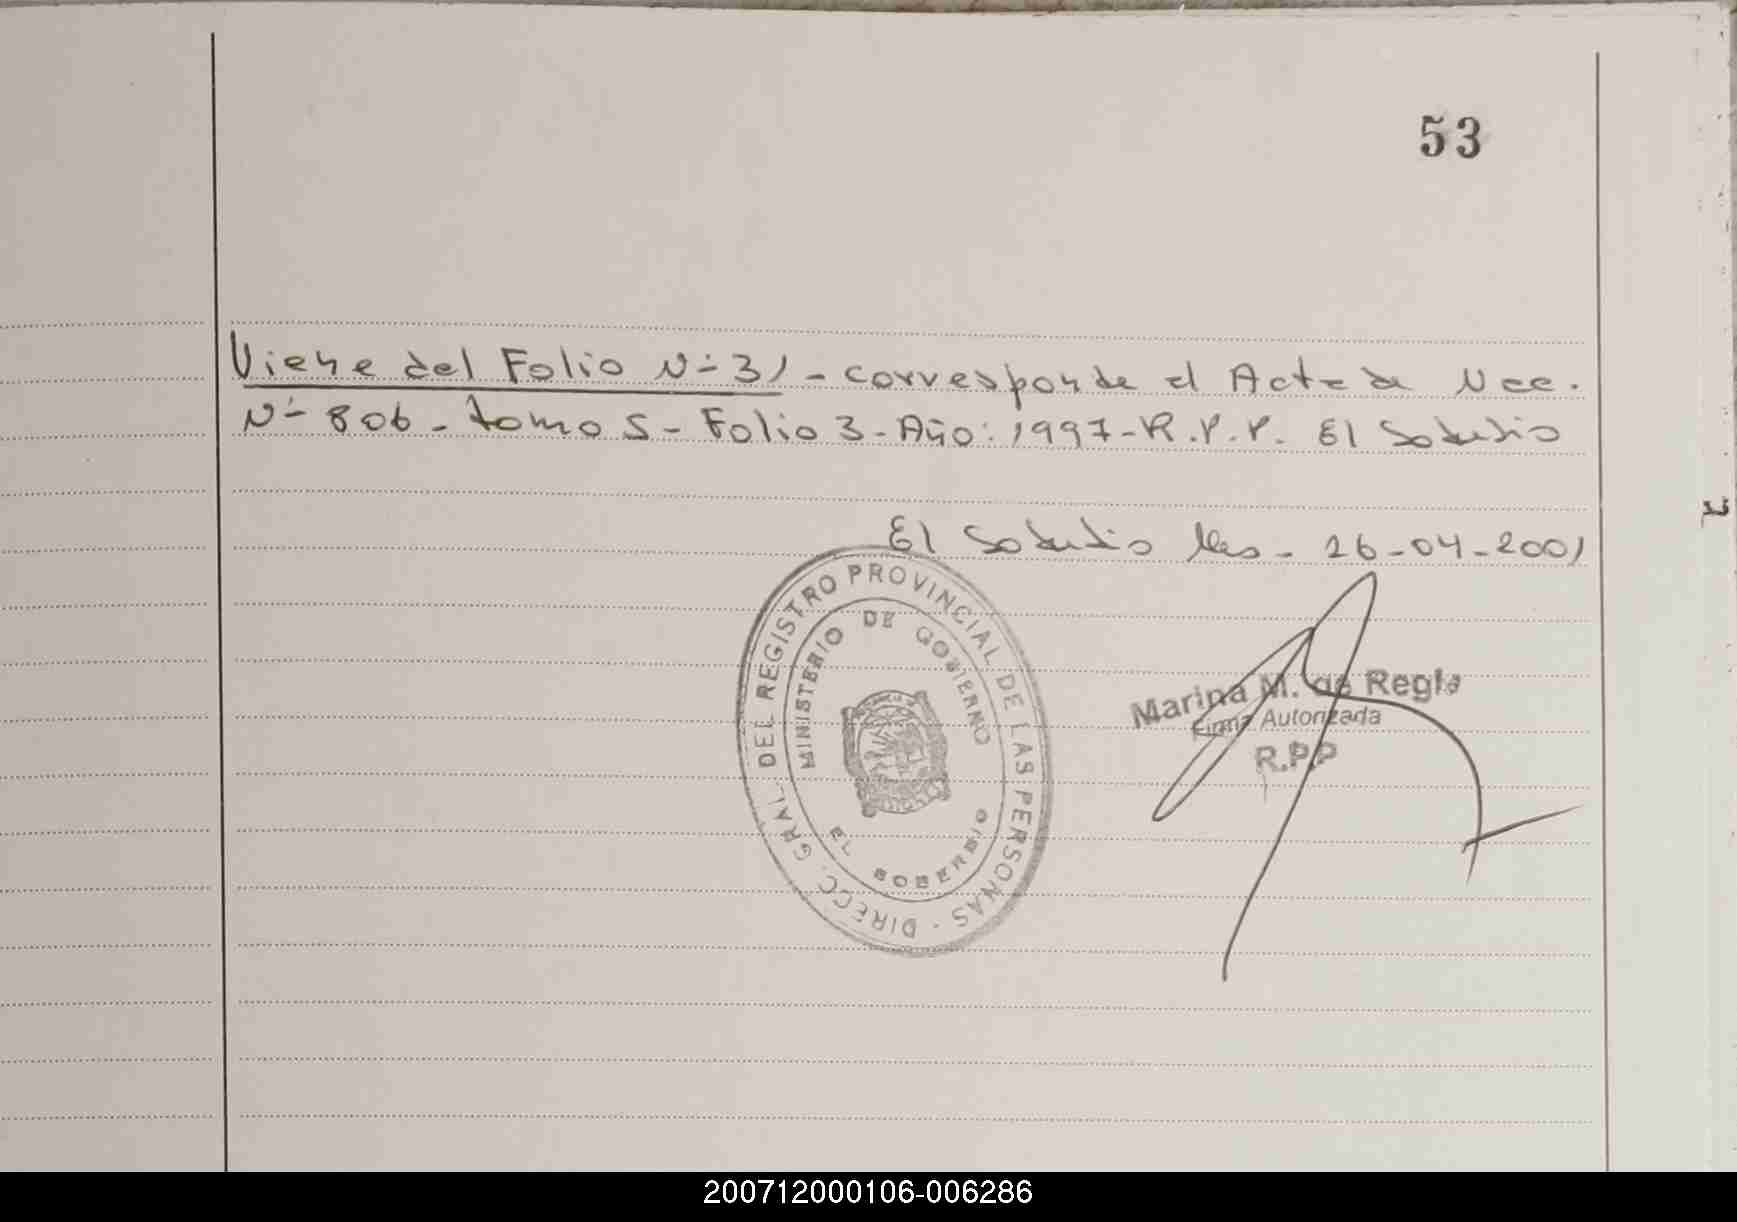 53
Viene del Folio Nº 31 - corresponde al Acta de Nac.
Nº 806 - tomo 5 - Folio 3 - Año: 1997 - R.P.P. El Soberbio
El Soberbio Mes - 26-04-2001
DIRECC. GRAL. DEL REGISTRO PROVINCIAL DE LAS PERSONAS -
MINISTERIO DE GOBIERNO
EL SOBERBIO
Marina M. de Regla
Firma Autorizada
R.P.P
200712000106-006286